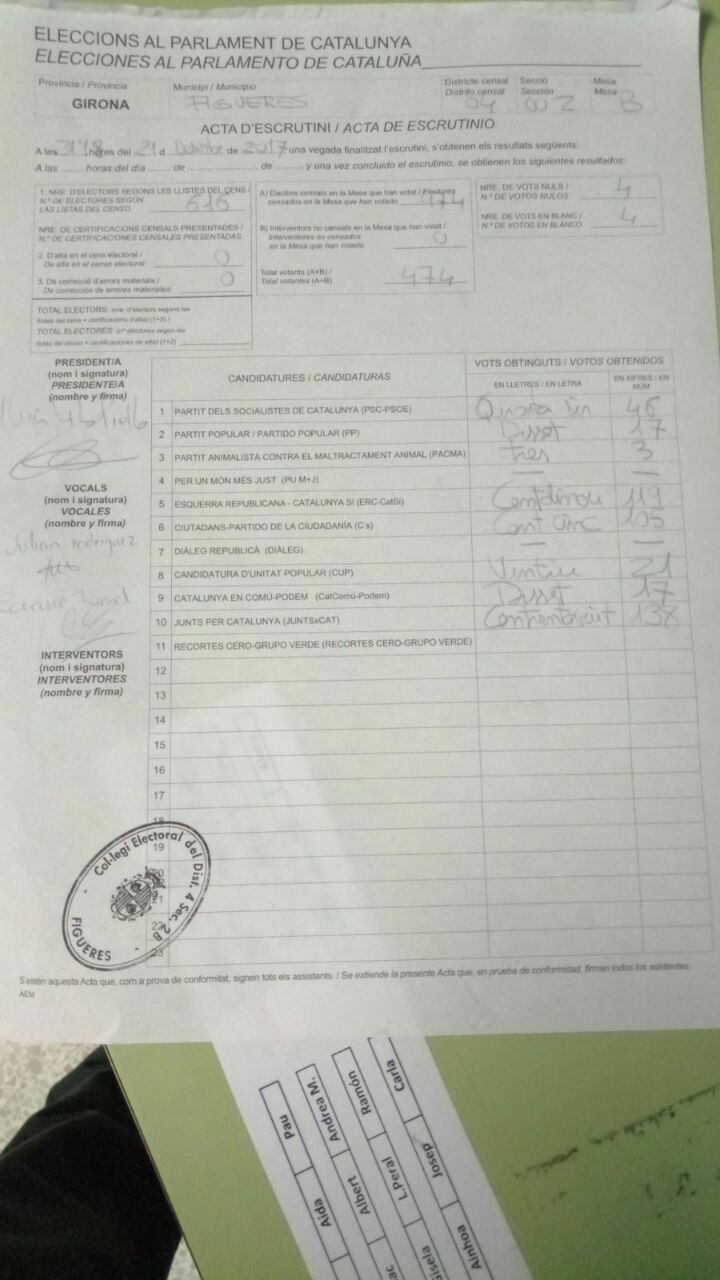 ELECCIONS AL PARLAMENT DE CATALUNYA
ELECCIONES AL PARLAMENTO DE CATALUÑA
Província / Provincia
GIRONA
Municipi / Municipio
FIGUERES
Districte censal
Distrito censal
04
Secció
Sección
002
Mesa
Mesa
B
ACTA D'ESCRUTINI / ACTA DE ESCRUTINIO
A les hores del 21 d Desembre de 2017 una vegada finalitzat l'escrutini, s'obtenen els resultats següents:
A las horas del día de de y una vez concluido el escrutinio, se obtienen los siguientes resultados:
1. NRE. D'ELECTORS SEGONS LES LLISTES DEL CENS /
N.º DE ELECTORES SEGÚN
LAS LISTAS DEL CENSO 616
NRE. DE CERTIFICACIONS CENSALS PRESENTADES /
N.º DE CERTIFICACIONES CENSALES PRESENTADAS
2. D'alta en el cens electoral /
De alta en el censo electoral 0
3. De correcció d'errors materials /
De corrección de errores materiales 0
TOTAL ELECTORS: (nre. d'electors segons les
llistes del cens + certificacions d'alta) (1+2) /
TOTAL ELECTORES: (nº electores según las
listas del censo + certificaciones de alta) (1+2)
A) Electors censats en la Mesa que han votat / Electores
censados en la Mesa que han votado 474
B) Interventors no censats en la Mesa que han votat /
Interventores no censados
en la Mesa que han votado 0
Total votants (A+B) /
Total votantes (A+B) 474
NRE. DE VOTS NULS /
N.º DE VOTOS NULOS 4
NRE. DE VOTS EN BLANC /
N.º DE VOTOS EN BLANCO 4
PRESIDENT/A
(nom i signatura)
PRESIDENTE/A
(nombre y firma)
VOCALS
(nom i signatura)
VOCALES
(nombre y firma)
Julian rodriguez
INTERVENTORS
(nom i signatura)
INTERVENTORES
(nombre y firma)
CANDIDATURES / CANDIDATURAS
VOTS OBTINGUTS / VOTOS OBTENIDOS
EN LLETRES / EN LETRA
EN XIFRES / EN NÚM.
1 PARTIT DELS SOCIALISTES DE CATALUNYA (PSC-PSOE) 46
2 PARTIT POPULAR / PARTIDO POPULAR (PP) Disset 17
3 PARTIT ANIMALISTA CONTRA EL MALTRACTAMENT ANIMAL (PACMA) tres 3
4 PER UN MÓN MÉS JUST (PU M+J) — —
5 ESQUERRA REPUBLICANA - CATALUNYA SÍ (ERC-CatSí) Centdinou 119
6 CIUTADANS-PARTIDO DE LA CIUDADANÍA (C's) Cent cinc 105
7 DIÀLEG REPUBLICÀ (DIÀLEG) — —
8 CANDIDATURA D'UNITAT POPULAR (CUP) Vintiu 21
9 CATALUNYA EN COMÚ-PODEM (CatComú-Podem) Disset 17
10 JUNTS PER CATALUNYA (JUNTSxCAT) 138
11 RECORTES CERO-GRUPO VERDE (RECORTES CERO-GRUPO VERDE)
12
13
14
15
16
17
18
19
20
21
22
23
Col·legi Electoral del Dist. 4 Sec. 2 B
FIGUERES
S'estén aquesta Acta que, com a prova de conformitat, signen tots els assistents. / Se extiende la presente Acta que, en prueba de conformidad, firman todos los asistentes.
AEM
Pau
Andrea M.
Ramón
Carla
Aida
Albert
L.Peral
Josep
Ainhoa